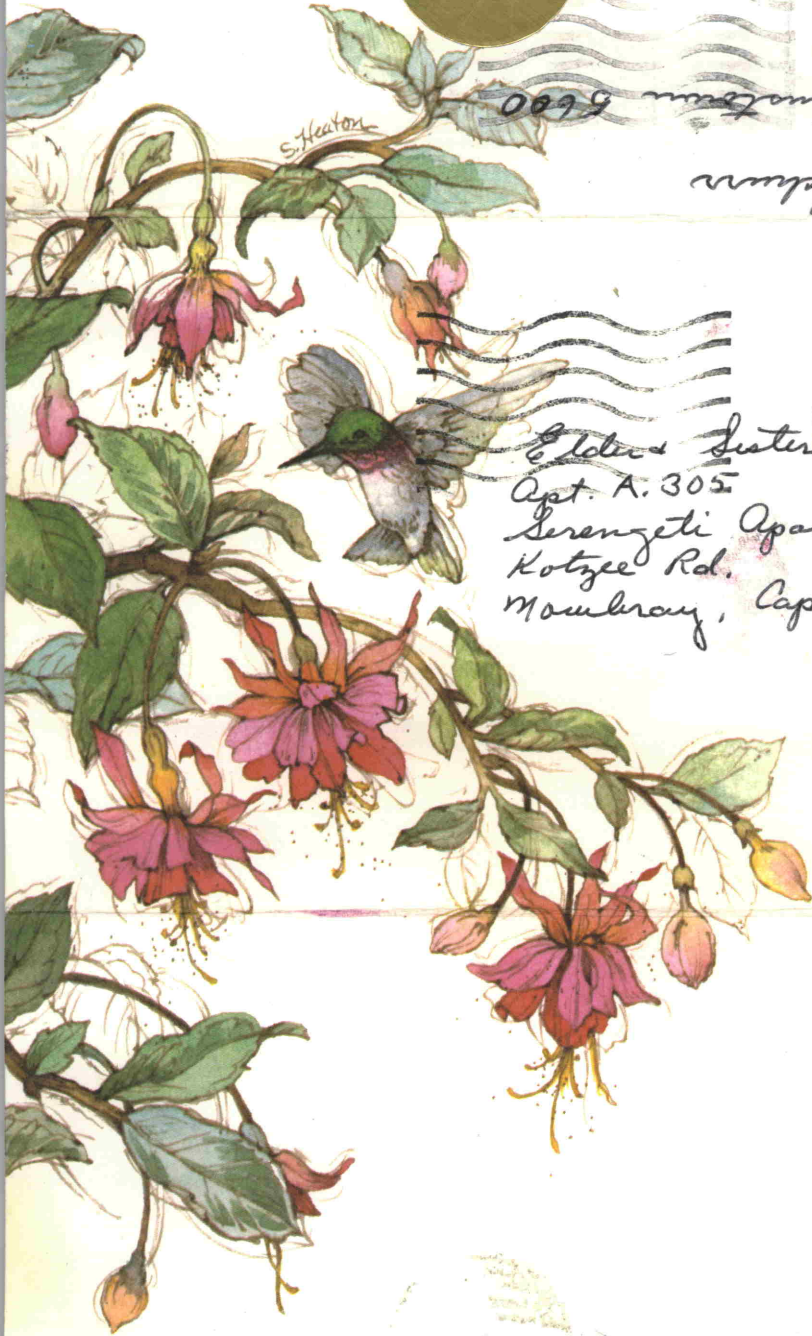 S. Heaton
mstown 5600
Elder & Sister
Apt. A. 305
Serengeti Apa
Kotzee Rd.
Mowbray, Cap